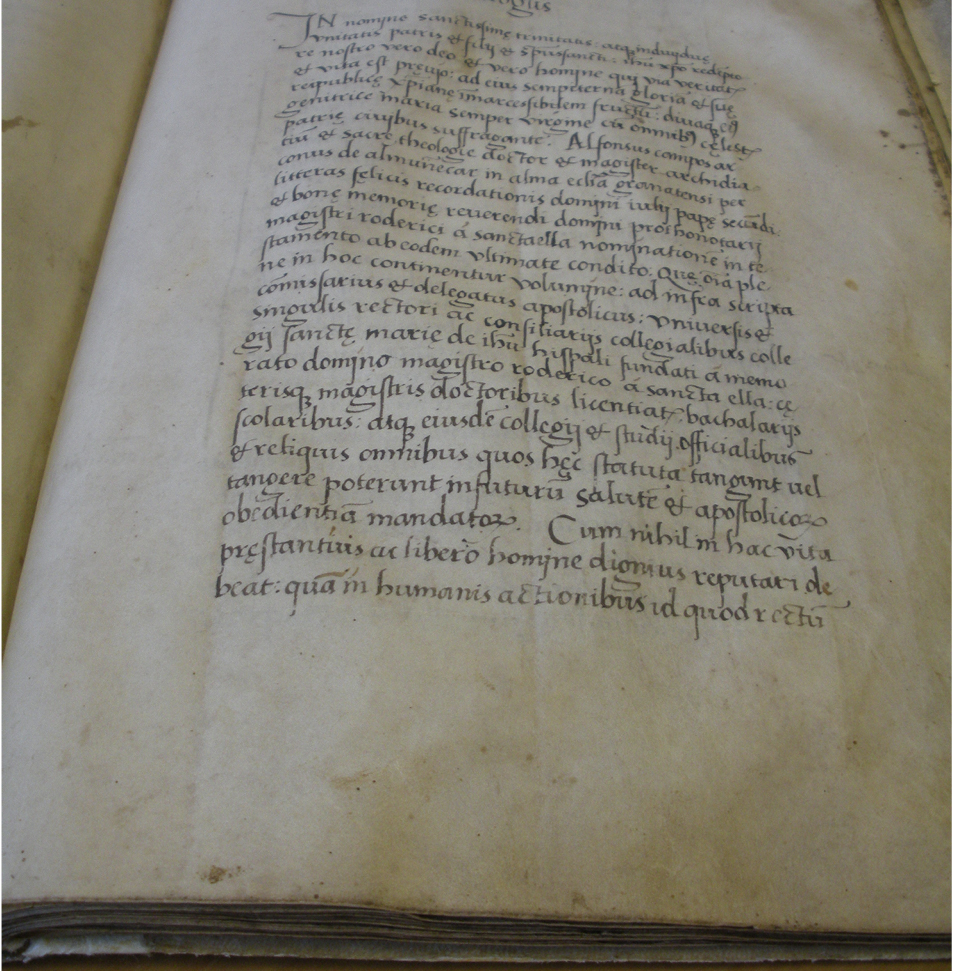 IN nomine sanctissimę trinitatis: atq; indiuiduę
vnitatis patris & filij & spūssancti: ihū xp̄o redēpto
re nostro vero deo & vero homine qui via veritas
& vita est preuio: ad cuius sempiterna gloriā & suę
reipublicę xp̄ianę īmarcessibilem fructū: diuaq; eꝰ
genitrice maria semper virgine cū omnibꝰ cęlestꝭ
patrię ciuibus suffragante. Alfonsus campos ar
tiū & sacre theologie doctor & magister archidia
conus de almuñecar in alma eccl̄ia granatensi per
litteras felicis recordationis domini iulij papę secūdi
& bonę memorię reuerendi domini prothonotarij
magistri roderici á sanctaella nominatione in te
stamento ab eodem vltimate condito. Quę oīa ple
ne in hoc continentur volumine: ad infra scripta
cōmissarius & delegatus apostolicus: vniuersis &
singulis rectori ac consiliarijs collegialibus colle
gij sanctę marię de ihū hispali fundati á memo
rato domino magistro roderico á sancta ella: cę
terisq; magistris doctoribus licentiatꝭ bachalarijs
scolaribus: atq; eiusdē collegij & studij officialibus
& reliquis omnibus quos hęc statuta tangunt uel
tangere poterunt in futurū salutē & apostolicoꝝ
obedientiā mandatoꝝ. Cum nihil in hac vita
pręstantius ac libero homine dignius reputari de
beat: quā in humanis actionibus id quod rectū